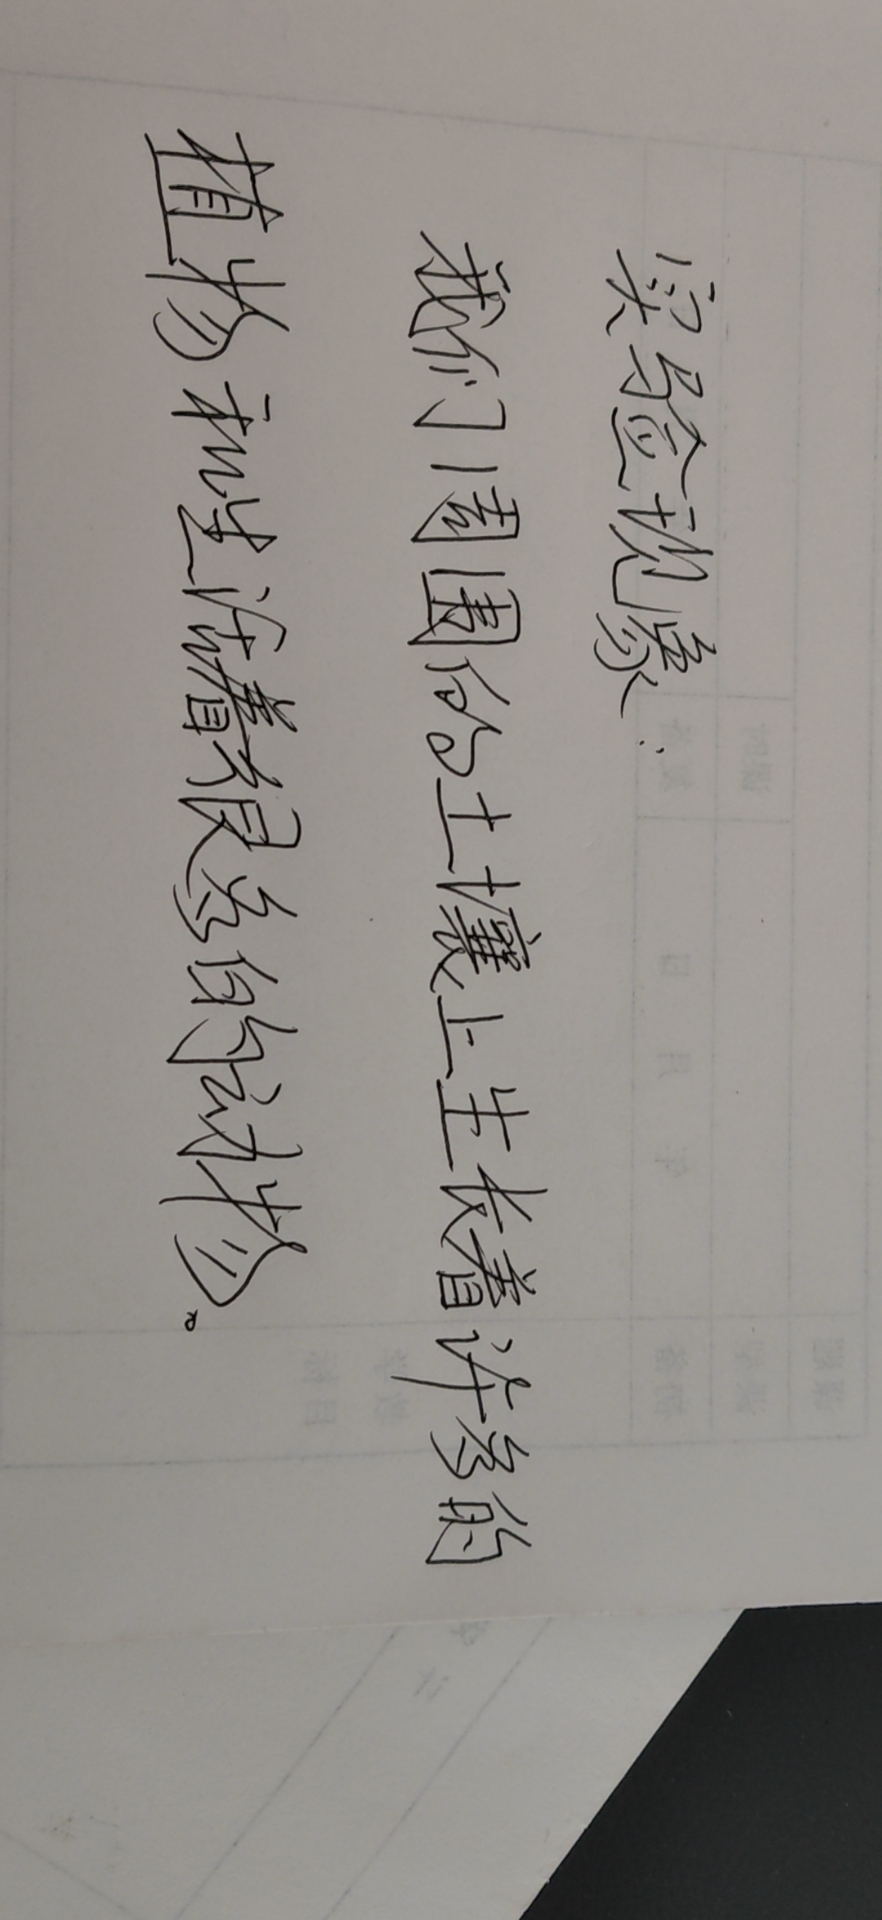 实验现象：
我们周围的土壤上生长着许多的
植物和生活着很多的动物。